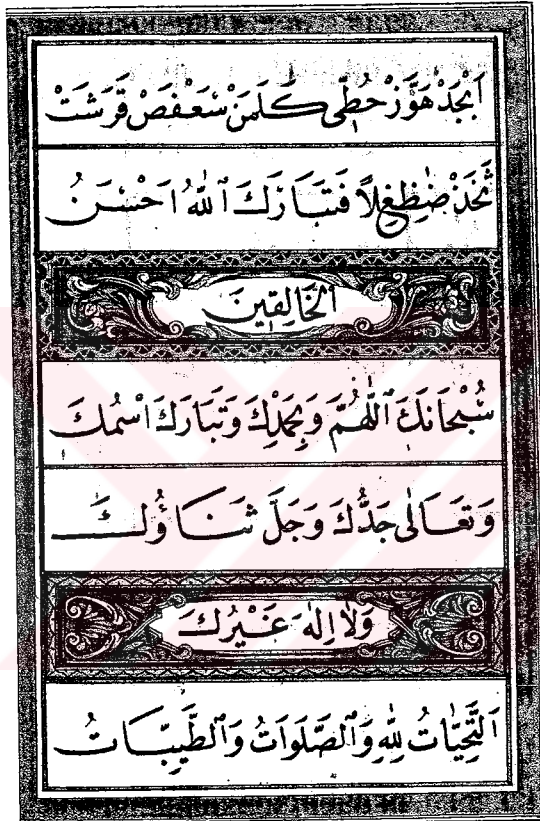 اَبْجَدْ هَوَّزْ حُطّٖى كَلَمَنْ سَعْفَصْ قَرَشَتْ
ثَخَذْ ضَظِغِلاً فَتَبَارَكَ ٱللّٰهُ اَحْسَنُ
الْخَالِقٖينَ
سُبْحَانَكَ ٱللّٰهُمَّ وَبِحَمْدِكَ وَتَبَارَكَ اسْمُكَ
وَتَعَالٰى جَدُّكَ وَجَلَّ ثَنَاؤُكَ
وَلَا اِلٰهَ غَيْرُكَ
اَلتَّحِيَّاتُ لِلّٰهِ وَٱلصَّلَوَاتُ وَٱلطَّيِّبَاتُ